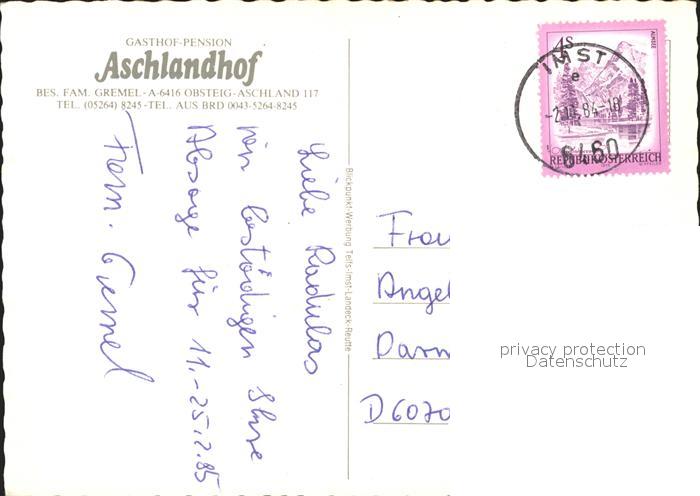 GASTHOF-PENSION
Aschlandhof
BES. FAM. GREMEL - A-6416 OBSTEIG-ASCHLAND 117
TEL. (05264) 8245 - TEL. AUS BRD 0043-5264-8245
Liebe Radulas
wir bestätigen Ihre
Absage für 11.-25.2.85
Fam. Gremel
Blickpunkt-Werbung Telfs-Imst-Landeck-Reutte
4s
ALMSEE
IMST
e
84-18
6460
REPUBLIK ÖSTERREICH
Frau
Angel
Darm
D 6070
privacy protection
Datenschutz